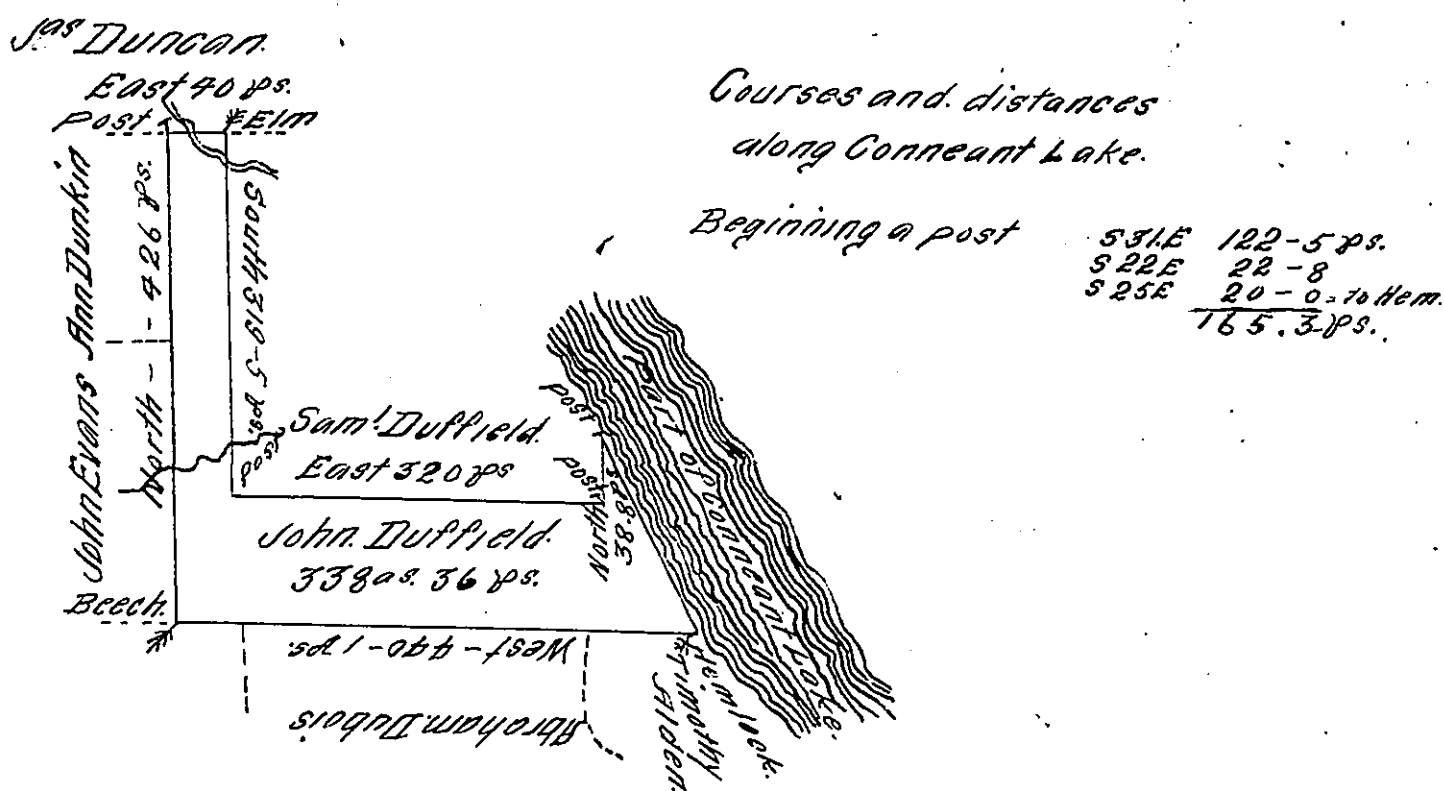 Jas Duncan.
East 40 ps.
Post
Elm
John Evans Ann Dunkin
North - - 426 ps.
South 319-5 ps.
post
Saml. Duffield.
East 320 ps
John. Duffield.
338as. 36 ps.
Beech.
West - 440 - 1 ps.
Abraham. Dubois
post
post
North
38.8 ps
part of Conneant Lake.
Hemlock.
Timothy
Alden.
Courses and. distances
along Conneant Lake.
Beginning a post
S31.E 122-5 ps.
S 22E 22-8
S 25E 20-0 = to Hem.
165.3 ps.